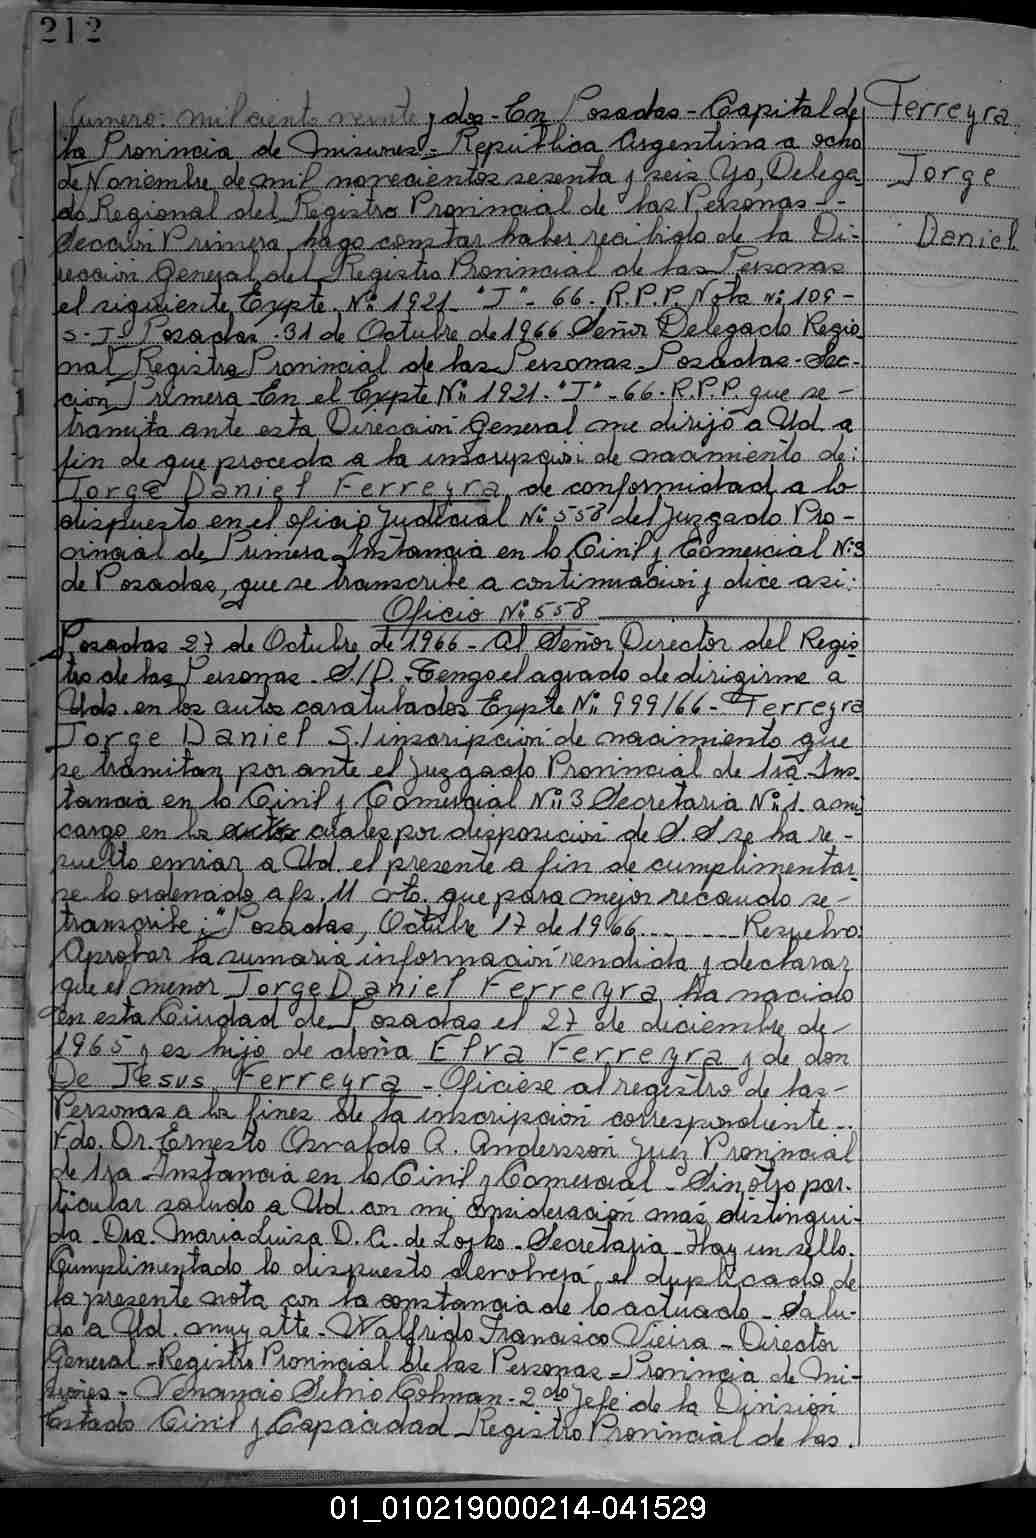 212
Ferreyra
Jorge
Daniel
Numero: mil ciento veinte y dos - En Posadas - Capital de
la Provincia de Misiones - Republica Argentina a ocho
de Noviembre de mil novecientos sesenta y seis Yo, Delega-
do Regional del Registro Provincial de las Personas -
Sección Primera, hago constar haber recibido de la Di-
rección General del Registro Provincial de las Personas
el siguiente Expte. Nº 1921 - "J" - 66. R.P.P. Nota Nº 109 -
S - J - Posadas - 31 de Octubre de 1966 Señor Delegado Regio-
nal Registro Provincial de las Personas - Posadas - Sec-
ción Primera - En el Expte Nº 1921. "J" - 66. R.P.P. que se -
tramita ante esta Dirección General me dirijo a Ud. a
fin de que proceda a la inscripción de nacimiento de:
Jorge Daniel Ferreyra, de conformidad a lo
dispuesto en el oficio Judicial Nº 558 del Juzgado Pro-
vincial de Primera Instancia en lo Civil y Comercial Nº 3
de Posadas, que se transcribe a continuación y dice asi:
Oficio Nº 558
Posadas 27 de Octubre de 1966 - Al Señor Director del Regis-
tro de las Personas - S/D. Tengo el agrado de dirigirme a
Uds. en los autos caratulados Expte Nº 999/66 - Ferreyra
Jorge Daniel S/inscripción de nacimiento que
se tramitan por ante el Juzgado Provincial de 1ra Ins-
tancia en lo Civil y Comercial Nº 3 Secretaria Nº 1 a mi
cargo en los cuales por disposición de S.S se ha re-
suelto enviar a Ud. el presente a fin de cumplimentar-
se lo ordenado a fs. 11 vto. que para mejor recaudo se -
transcribe: "Posadas, Octubre 17 de 1966 - - - - - Resuelvo:
Aprobar la sumaria información rendida y declarar
que el menor Jorge Daniel Ferreyra, ha nacido
en esta Ciudad de Posadas el 27 de diciembre de -
1965 y es hijo de doña Elva Ferreyra y de don
De Jesus Ferreyra - Oficiese al registro de las -
Personas a los fines de la inscripción correspondiente -.
Fdo. Dr. Ernesto Osvaldo A. Andersson Juez Provincial
de 1ra Instancia en lo Civil y Comercial - Sin otro par-
ticular saludo a Ud. con mi consideración mas distingui-
da - Dra. Maria Luisa D. A. de Lojko - Secretaria - Hay un sello.
Cumplimentado lo dispuesto devolverá el duplicado de
la presente nota con la constancia de lo actuado - Salu-
do a Ud. muy atte - Walfrido Francisco Vieira - Director
General - Registro Provincial de las Personas - Provincia de Mi-
siones - Venancio Silvio Colman - 2do Jefe de la Division
Estado Civil y Capacidad - Registro Provincial de las.
01_010219000214-041529